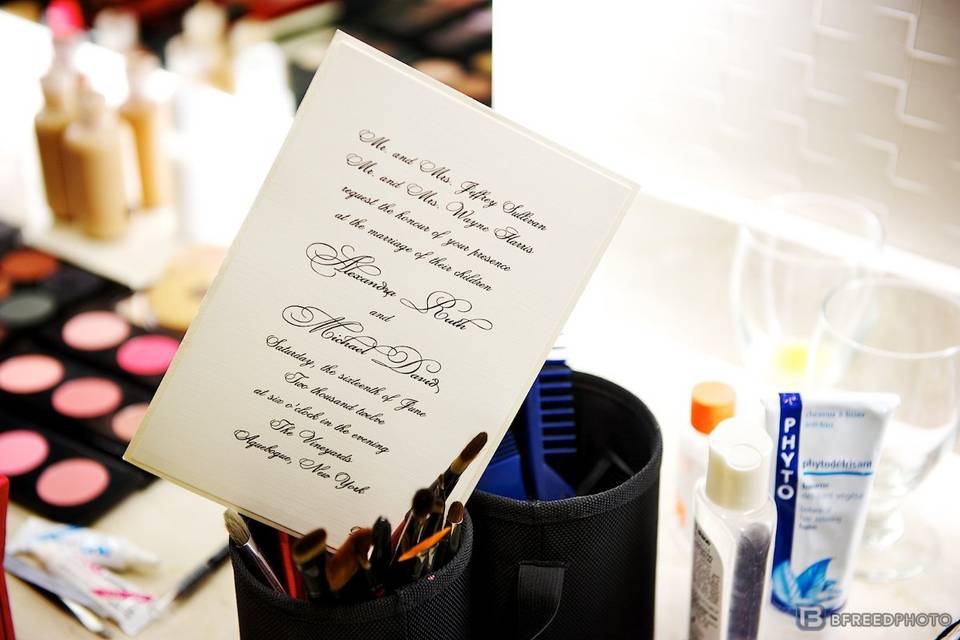 Mr. and Mrs. Jeffrey Sullivan
Mr. and Mrs. Wayne Harris
request the honour of your presence
at the marriage of their children
Alexandra Ruth
and
Michael David
Saturday, the sixteenth of June
Two thousand twelve
at six o'clock in the evening
The Vineyards
Aquebogue, New York
PHYTO
phytodéfrisant
BFREEDPHOTO